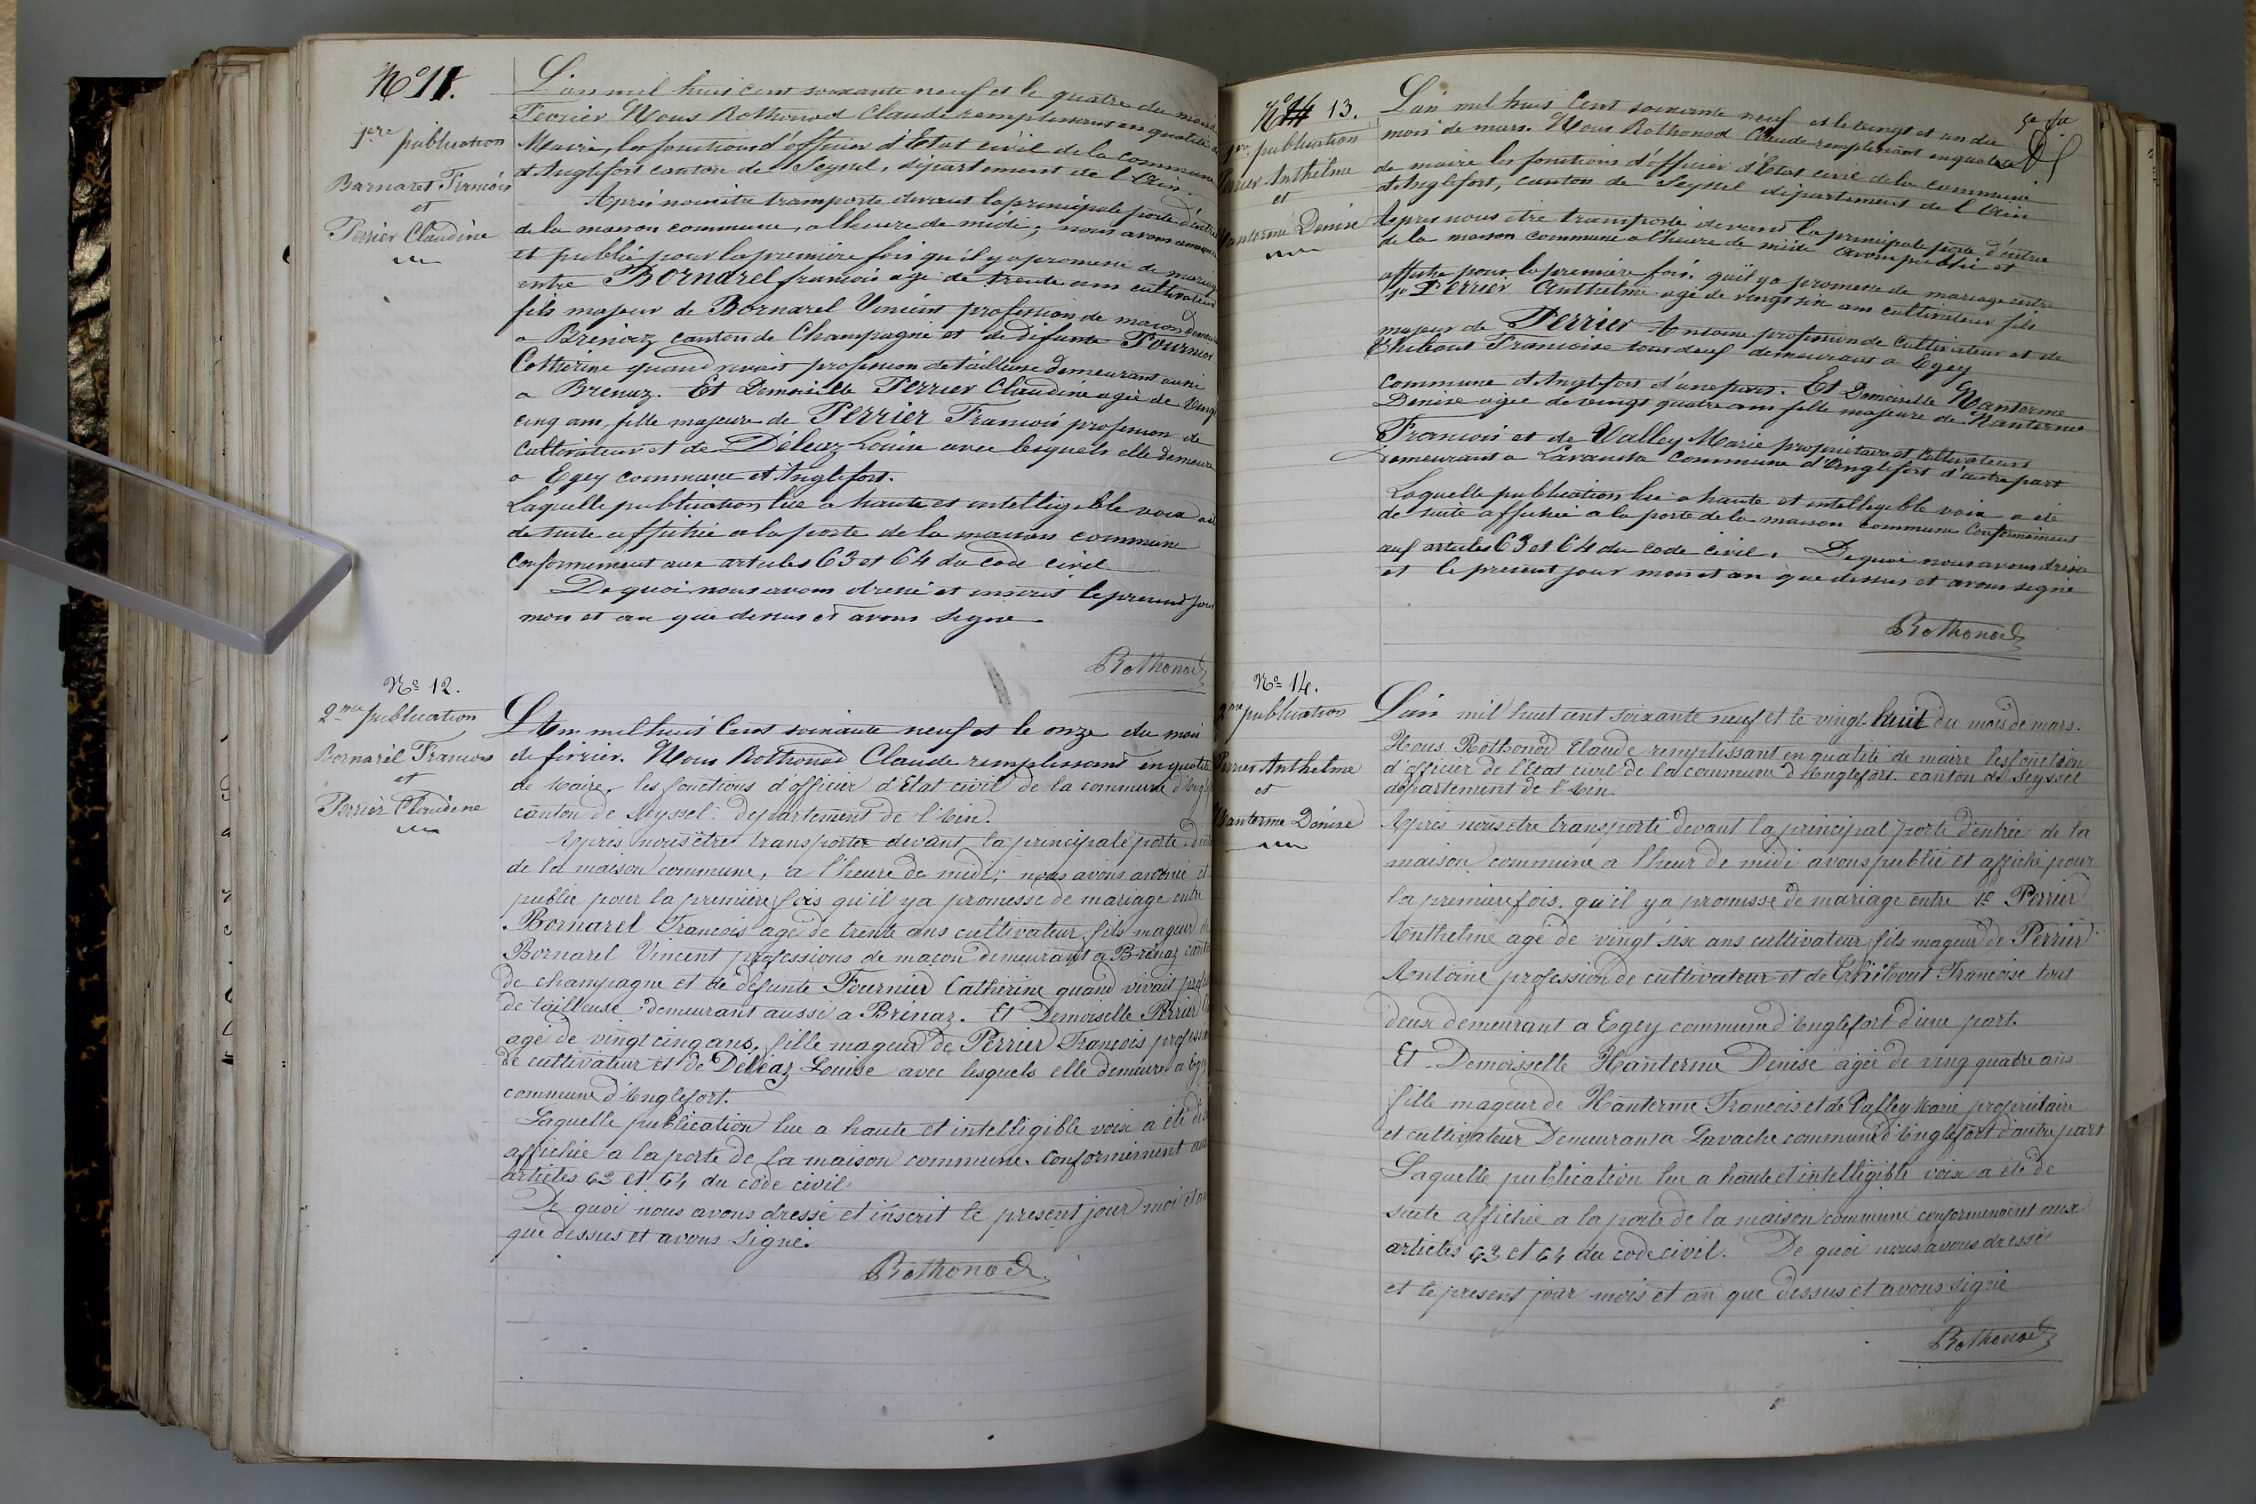 No 11.
1ère publication
Barnaret François
et
Perrier Claudine
L'an mil huit cent soixante neuf et le quatre du mois
Fevrier Nous Rothonod Claude remplissant en qualité de
Maire, les fonctions d'officier d'Etat civil de la commune
d'Anglefort canton de Seyssel, département de l'Ain.
Après nous être transporté devant la principale porte d'entrée
de la maison commune, a l'heure de midi; nous avons annoncé
et publié pour la première fois qu'il y a promesse de mariage
entre Bornarel françois agé de trente ans cultivateur
fils majeur de Bornarel Vincent profession de maçon demeurant
a Brénaz canton de Champagne et de défunte Fournier
Catherine quand vivait profession de tailleuse demeurant aussi
a Brenaz. Et Demoiselle Perrier Claudine agée de vingt
cinq ans, fille majeure de Perrier François profession de
Cultivateur et de Déléaz Louise avec lesquels elle demeure
a Egey commune d'Anglefort.
Laquelle publication lue a haute et intelligible voix a été
de suite affichée a la porte de la maison commune
conformement aux articles 63 et 64 du code civil
De quoi nous avons dressé et inscrit le present jour
mois et an que dessus et avons signé
Rothonod
No 12.
2me publication
Bornarel François
et
Perrier Claudine
L'An mil huit Cent soixante neuf et le onze du mois
de février. Nous Rothonod Claude remplissant en qualité
de Maire, les fonctions d'officier d'Etat civil de la commune d'Angle
canton de Seyssel. département de l'Ain.
Après nous être transporter devant la principale porte d'entr
de la maison commune, a l'heure de midi; nous avons anonié et
publié pour la première fois qu'il y a promesse de mariage entre
Bornarel François agé de trente ans cultivateur fils mageur de
Bornarel Vincent professions de maçon demeurant a Brénaz canto
de champagne et de défunte Fournier Catherine quand vivait profes
de tailleuse demeurant aussi a Brénaz. Et Demoiselle Perrier Cl
agé de vingt cinq ans, fille mageur de Perrier François professio
de cultivateur et de Déléaz Louise avec lesquels elle demeure a Egey
commune d'Anglefort.
Laquelle publication lue a haute et intelligible voix a été de s
affichée a la porte de la maison commune. Conformément aux
articles 63 et 64 du code civil
De quoi nous avons dressé et inscrit le présent jour moi et an
que dessus et avons signé.
Rothonod
No 14 13.
1ère publication
Perrier Anthelme
et
Nanterme Denise
L'an mil huit Cent soixante neuf et le vingt et un du
mois de mars. Nous Rothonod Claude remplissant en qualité
de maire les fonctions d'officier d'Etat civil de la commune
d'Anglefort, canton de Seyssel département de l'Ain
Apres nous etre transporté devant la principale porte d'entrée
de la maison commune a l'heure de midi avons publié et
affiché pour la première fois. qu'il y a promesse de mariage entre
Perrier Anthelme agé de vingt six ans cultivateur fils
majeur de Perrier Antoine profession de Cultivateur et de
Thibout Françoise tous deux demeurant a Egey
Commune d'Anglefort d'une part. Et Demoiselle Nanterme
Denise agée de vingt quatre ans fille majeure de Nanterme
François et de Valley Marie proprietaire et cultivateurs
demeurant a Lavanche commune d'Anglefort d'autre part
Laquelle publication lue a haute et intelligible voix a été
de suite affichée a la porte de la maison commune Conformément
aux articles 63 et 64 du code civil. De quoi nous avons dressé
et le présent jour mois et an que dessus et avons signé
Rothonod
No 14.
2me publication
Perrier Anthelme
et
Nanterme Denise
L'an mil huit cent soixante neuf et le vingt huit du mois de mars.
Nous Rothonod Claude remplissant en qualité de maire les fonction
d'officier de l'Etat civil de la commune d'Anglefort. canton de Seyssel
département de l'Ain.
Après nous etre transporté devant la principal porte d'entrée de la
maison commune a l'heur de midi avons publié et affiché pour
la première fois. qu'il y a promesse de mariage entre Perrier
Anthelme agé de vingt six ans cultivateur fils mageur de Perrier
Antoine profession de cultivateur et de Thibout Françoise tout
deux demeurant a Egey commune d'Anglefort d'une part.
Et Demoiselle Nanterme Denise agée de ving quatre ans
fille mageur de Nanterme François et de Valley Marie propriétaire
et cultivateur Demeurant a Lavache commune d'Anglefort d'autre part
Laquelle publication lue a haute et intelligible voix a été de
suite affichée a la porte de la maison commune conformement aux
articles 63 et 64 du code civil. De quoi nous avons dressé
et le présent jour mois et an que dessus et avons signé
Rothonod